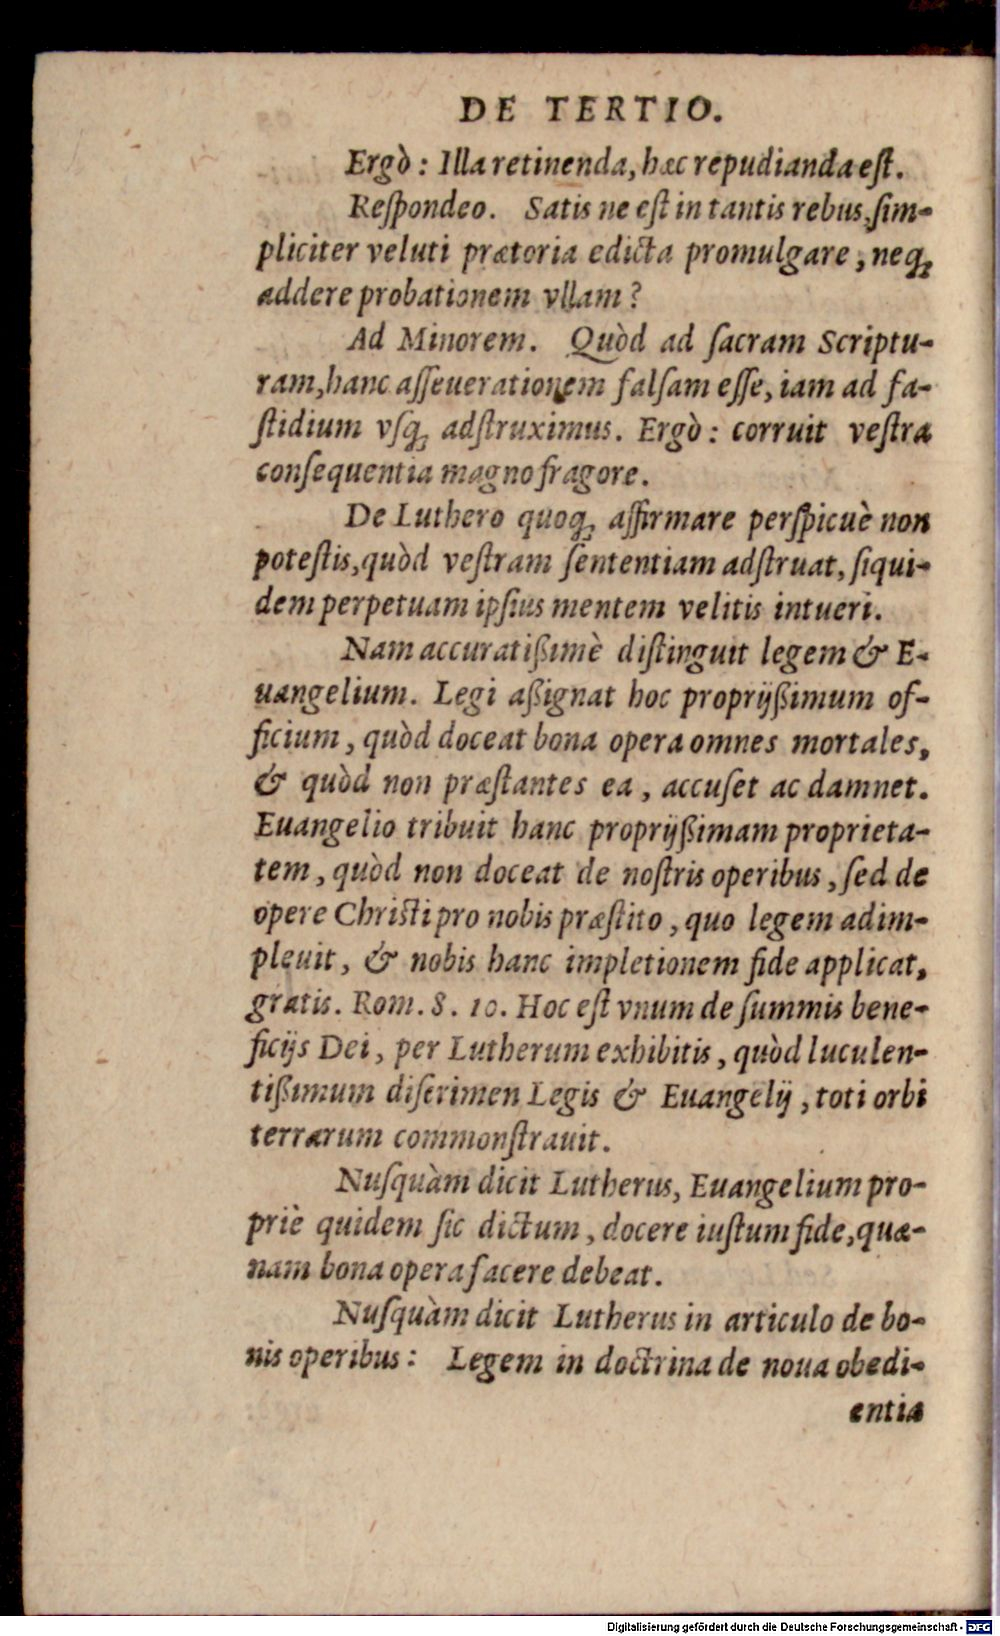 DE TERTIO.
Ergò: Illa retinenda, hæc repudianda eſt.
Reſpondeo. Satis ne eſt in tantis rebus, ſim-
pliciter veluti prætoria edicta promulgare, neq́;
addere probationem vllam?
Ad Minorem. Quòd ad ſacram Scriptu-
ram, hanc aſſeuerationem falſam eſſe, iam ad fa-
ſtidium vſq́; adſtruximus. Ergò: corruit veſtra
conſequentia magno fragore.
De Luthero quoq́; affirmare perſpicuè non
poteſtis, quòd veſtram ſententiam adſtruat, ſiqui-
dem perpetuam ipſius mentem velitis intueri.
Nam accuratißimè diſtinguit legem & E-
uangelium. Legi aßignat hoc proprijßimum of-
ficium, quòd doceat bona opera omnes mortales,
& quòd non præſtantes ea, accuſet ac damnet.
Euangelio tribuit hanc proprijßimam proprieta-
tem, quòd non doceat de noſtris operibus, ſed de
opere Chriſti pro nobis præſtito, quo legem adim-
pleuit, & nobis hanc impletionem fide applicat,
gratis. Rom. 8. 10. Hoc eſt vnum de ſummis bene-
ficijs Dei, per Lutherum exhibitis, quòd luculen-
tißimum diſcrimen Legis & Euangelij, toti orbi
terrarum commonſtrauit.
Nuſquàm dicit Lutherus, Euangelium pro-
priè quidem ſic dictum, docere iuſtum fide, quæ-
nam bona opera facere debeat.
Nuſquàm dicit Lutherus in articulo de bo-
nis operibus: Legem in doctrina de noua obedi-
entia
Digitalisierung gefördert durch die Deutsche Forschungsgemeinschaft - DFG